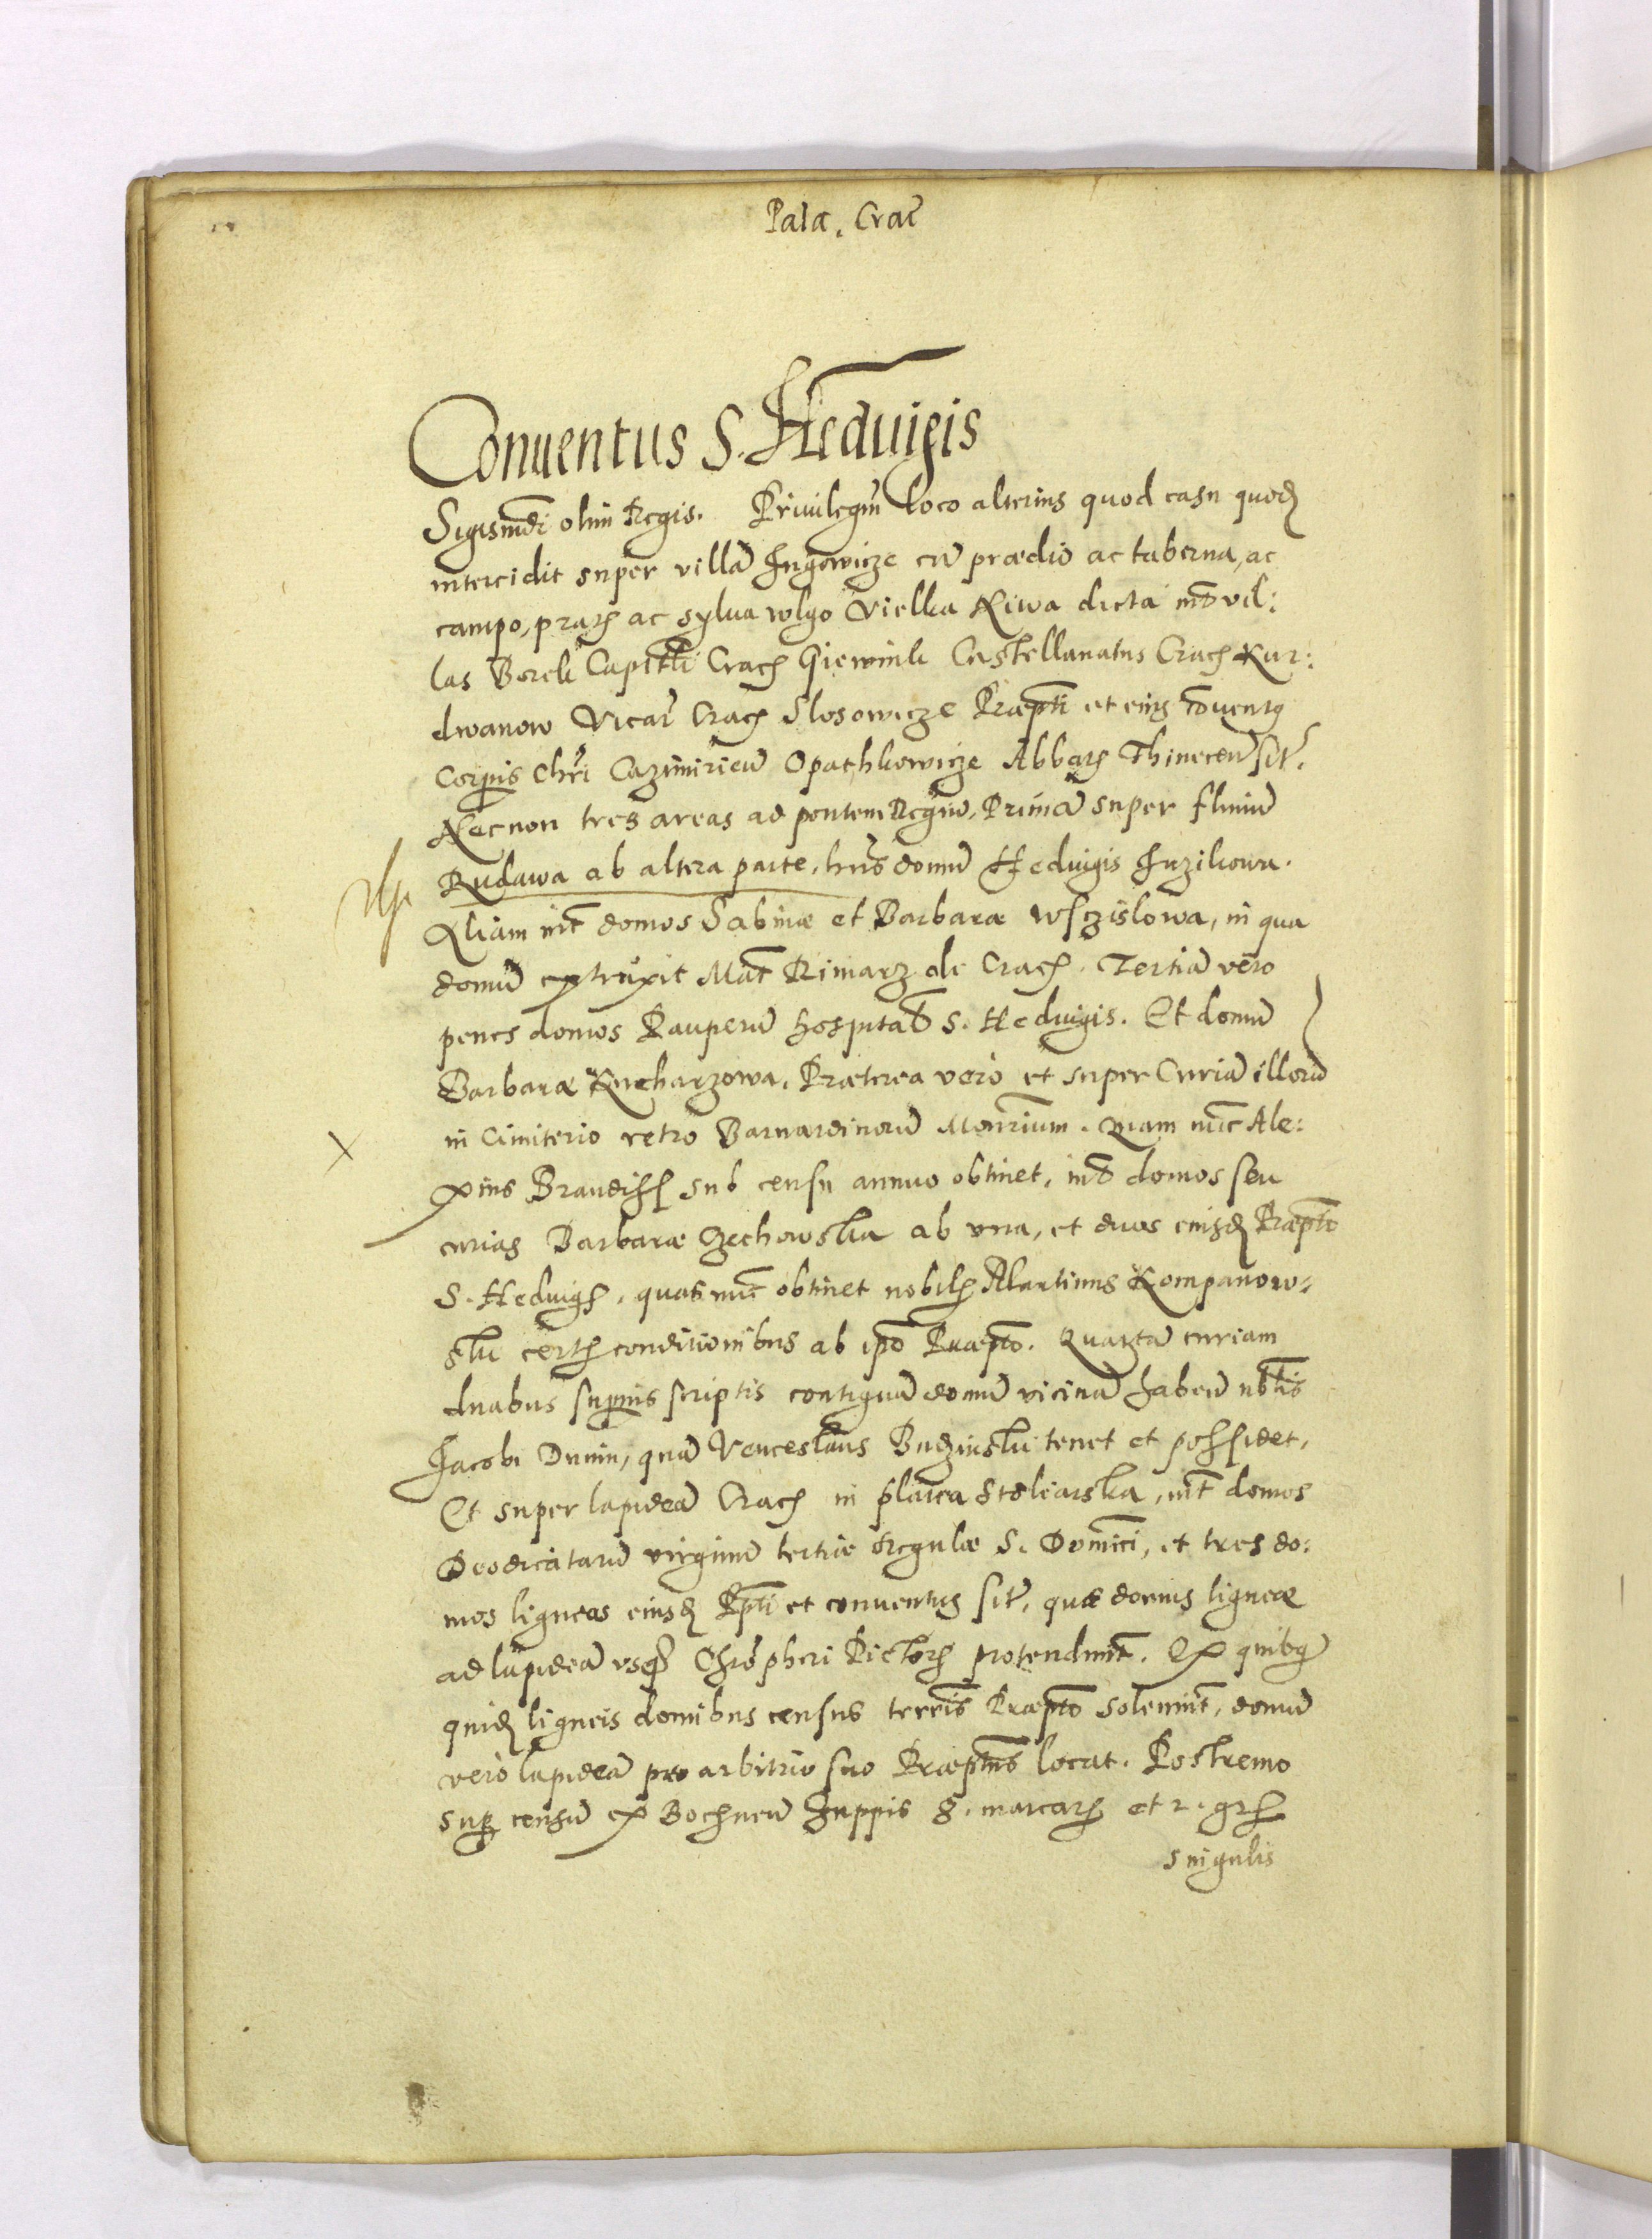 Pala. Crac̃
Conuentus S. Heduigis
Sigismũdi olim Regis. Priuilegiũ loco alterius quod casu quodã
intercidit super villã Jugowicze cũ prædio ac taberna, ac
campo, pratis ac sylua vulgo Vielka Niwa dicta inter vil:
las Borek Capituli Crac Giewink Castellanatus Crac Kur:
dwanow Vicar Crac Slosowicze Præpti et eius conuentus
Corporis Chri Cazimirien Opathkowicze Abbatis Thinecen sit.
Necnon tres areas ad pontem Regiũ, Primã super fluuiũ
Rudawa ab altera parte, huius domũ Heduigis Juzikowa.
Aliam int domos Sabinæ et Barbaræ Wsczislowa, in qua
domũ extruxit Mat Rimarz de Crac. Tertiã vero
penes domos Pauperũ hospitalis S. Heduigis. Et domũ
Barbaræ Kucharzowa. Præterea verò et super Curiã illorũ
in Cimiterio retro Barnardinorũ Monrium. Quam nũc Ale:
xius sub censu annuo obtinet, inter domos seu
curias Barbaræ Czechowska ab vna, et duas eiusdẽ Præpto
S. Heduigis, quas nũc obtinet nobilis Martinus Kompanow:
ski certis conditionibus ab ipo Præpto. Quartã curiam
duabus superius scriptis contiguã domũ vicinã habeñ nobilis
Jacobi Dunin, quã Venceslaus Budzinski tenet et possidet,
Et super lapideã Crac in platea Stoliarska, int domos
Deodicatarũ virginũ tertiæ Regulæ S. Dominici, et tres do:
mos ligneas eiusdẽ Ppti et conuentus sit, quæ domus ligneæ
ad lapideã vsq Chrophori Pictoris protendunt. Ex quibus
quidẽ ligneis domibus census terris Præpto soluunt, domũ
verò lapideã pro arbitrio suo Præptus locat. Postremo
super censũ ex Bochnen Zuppis 8. marcaris et 2. gris
singulis